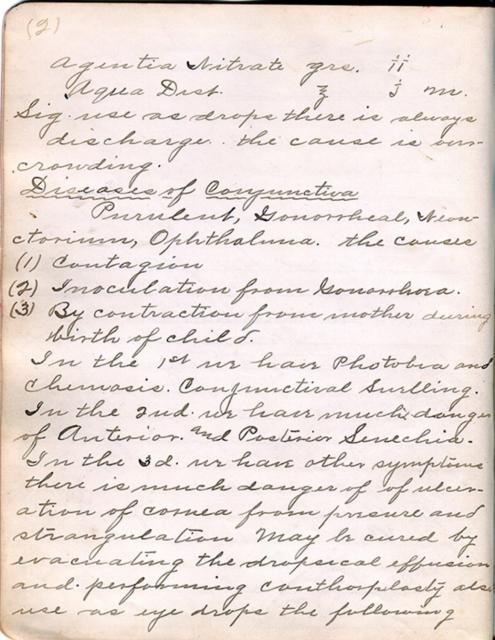 (2)
Agentia Nitrate grs. ii
Aqua Dist. ℥ i m.
Sig. use as drops there is always
discharge. the cause is over-
crowding.
Diseases of Conjunctiva
Purulent, Gonorrheal, Neon-
ctorium, Ophthalma. the causes
(1) Contagion
(2) Inoculation from Gonorrhora.
(3) By contraction from mother during
birth of child.
In the 1st we have Photobia and
chemosis. Conjunctival Swelling.
In the 2nd. we have much danger
of Anterior. and Posterior Senechia.
In the 3d. we have other symptoms
there is much danger of of ulcer-
ation of cornea from presure and
strangulation May be cured by
evacuating the dropsical effusion
and. performing canthorplasty also
use as eye drops the following